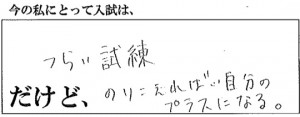 今の私にとって入試は、
つらい試練
だけど、のりこえれば自分の
プラスになる。